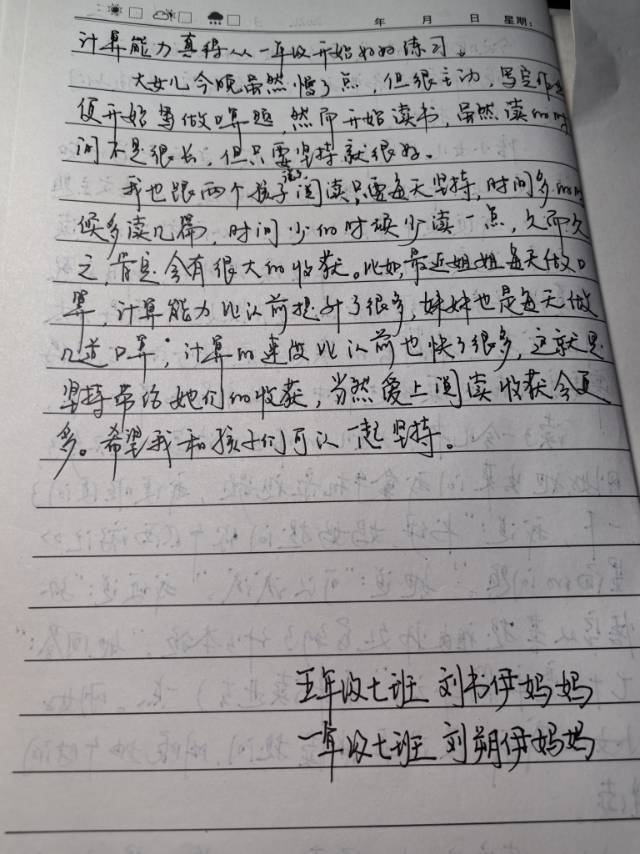 年 月 日 星期:
计算能力真得从一年级开始好好练习。
大女儿今晚虽然慢了点，但很主动，写完作业
便开始写做口算题，然而开始读书，虽然读的时
间不是很长，但只要坚持就很好。
我也跟两个孩子说了阅读只要每天坚持，时间多的时
候多读几篇，时间少的时候少读一点，久而久
之，肯定会有很大的收获。比如，最近姐姐每天做口
算，计算能力比以前提升了很多，妹妹也是每天做
几道口算，计算的速度比以前也快了很多，这就是
坚持带给她们的收获，当然爱上阅读收获会更
多。希望我和孩子们可以一起坚持。
五年级七班 刘书伊妈妈
一年级七班 刘朔伊妈妈